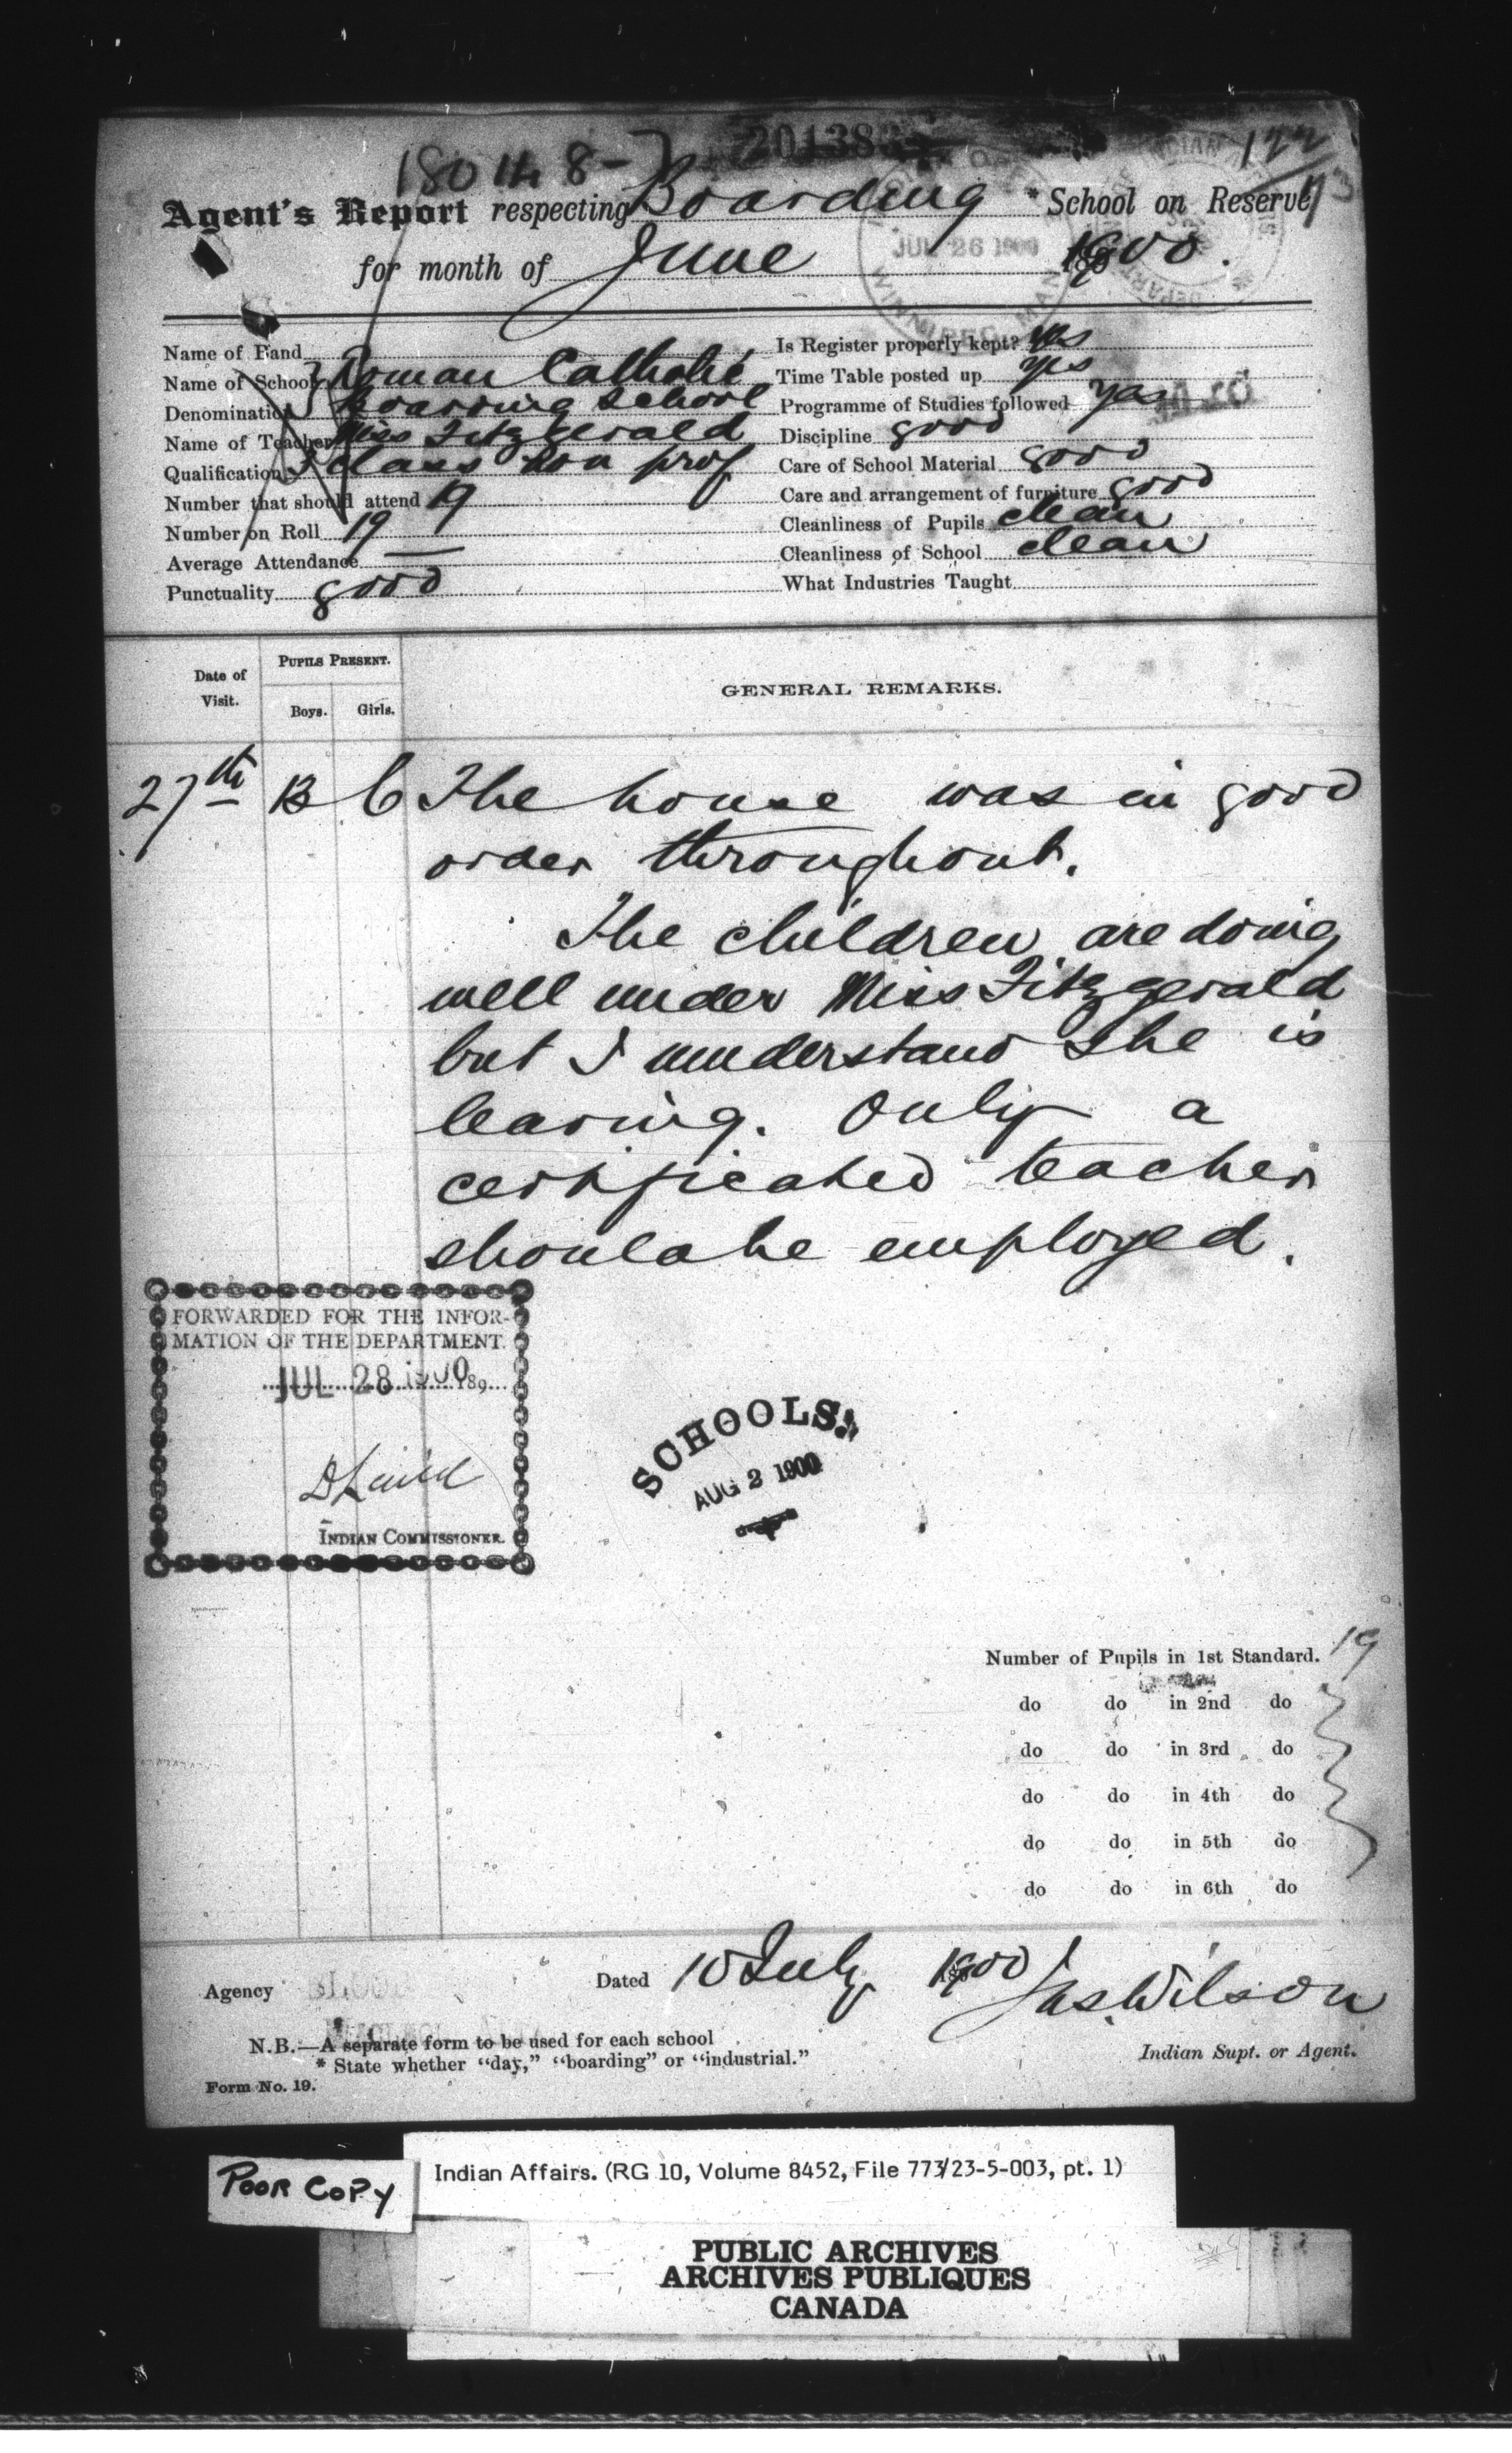 201383
180148-7
122
Agent's Report respecting Boarding * School on Reserve
for month of June 1900.
JUL 26 1900
WINNIPEG MAN
Name of Band
Name of School Roman Catholic
Denomination Boarding School
Name of Teacher Miss Fitzgerald
Qualification class non prof
Number that should attend 19
Number on Roll 19
Average Attendance —
Punctuality good
Is Register properly kept? yes
Time Table posted up yes
Programme of Studies followed yes
Discipline good
Care of School Material good
Care and arrangement of furniture good
Cleanliness of Pupils clean
Cleanliness of School clean
What Industries Taught
Date of Visit.
PUPILS PRESENT.
Boys. Girls.
GENERAL REMARKS.
27th 13 6 The house was in good
order throughout.
The children are doing
well under Miss Fitzgerald
but I understand she is
leaving. Only a
certificated teacher
should be employed.
FORWARDED FOR THE INFOR-
MATION OF THE DEPARTMENT.
JUL 28 1900 189
D Laird
INDIAN COMMISSIONER.
SCHOOLS.
AUG 2 1900
Number of Pupils in 1st Standard. 19
do do in 2nd do
do do in 3rd do
do do in 4th do
do do in 5th do
do do in 6th do
Agency
Dated 10 July 1900 Jas Wilson
Indian Supt. or Agent.
N.B.—A separate form to be used for each school
* State whether "day," "boarding" or "industrial."
Form No. 19.
POOR COPY
Indian Affairs. (RG 10, Volume 8452, File 773/23-5-003, pt. 1)
PUBLIC ARCHIVES
ARCHIVES PUBLIQUES
CANADA